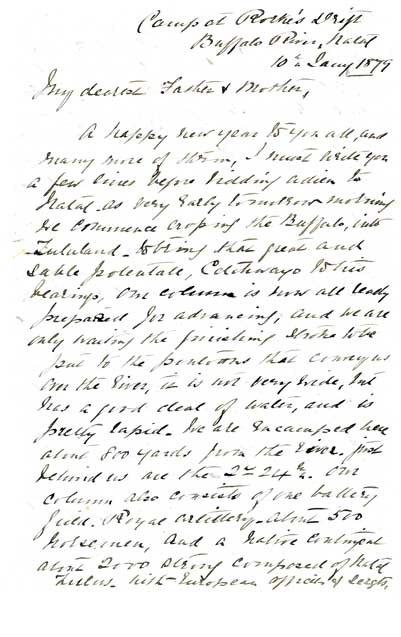 Camp at Rorke's Drift
Buffalo River, Natal
10th Jany 1879
My dearest Father & Mother,
A happy new year to you all, and
many more of them, I must write you
a few lines before bidding adieu to
Natal as very early tomorrow morning
we commence crossing the Buffalo, into
Zululand - to bring that great and
sable potentate, Cetchwayo to his
bearings, Our column is now all ready
prepared for advancing, and we are
only waiting the finishing stroke to be
put to the pontoons that convey us
over the river, it is not very wide, but
has a good deal of water, and is
pretty rapid - We are encamped here
about 800 yards from the river. just
behind us are the 2nd 24th. Our
column also consists of one battery
field. Royal Artillery - about 500
horsemen, and a Native Contingent
about 2000 strong composed of Natal
Zulus. with European officers & Sergts,